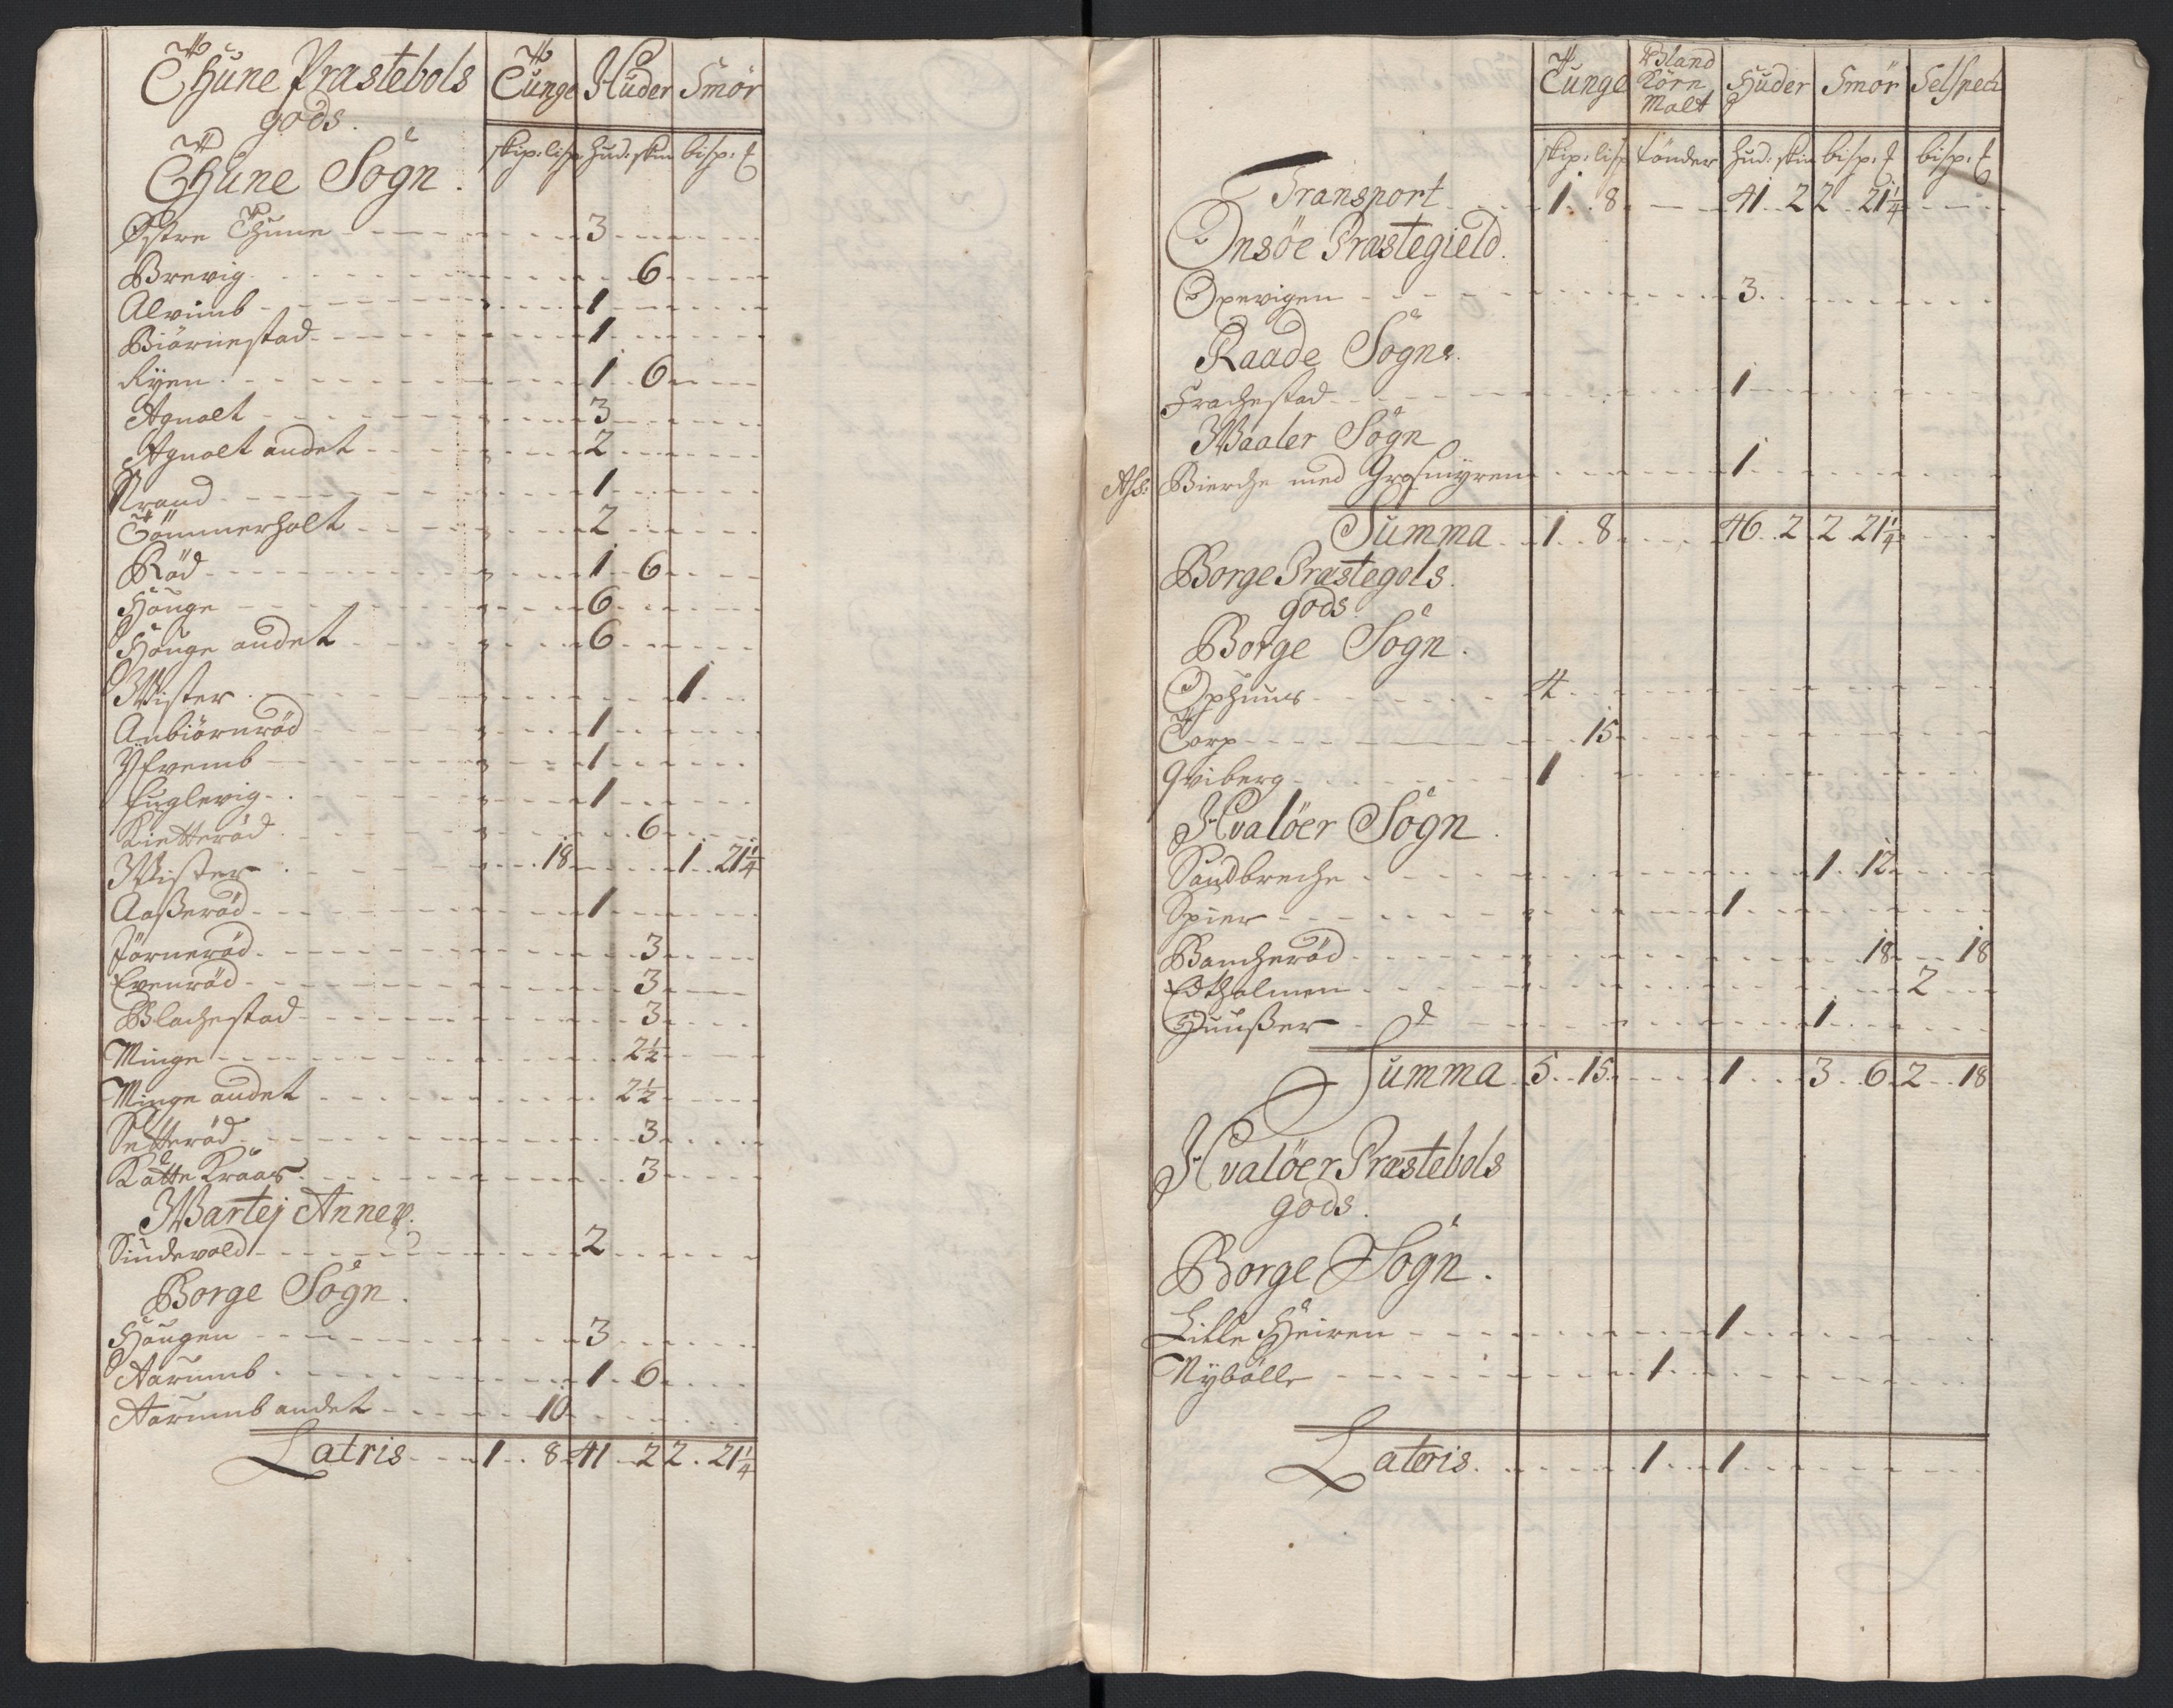 Thune Præstebols Tunge Huder Smör
gods.
Thune Sogn. skip: lisp hud: skin bisp: ℔
Östre Thune 3
Brevig 6
Alvimb 1
Biörnestad 1
Ryen 1 6
Agnalt 3
Agnalt andet 2
Krand 1
Tömmerholt 2
Röd 1 6
Houge 6
Houge andet 6
Wister 1
Anbiörnröd 1
Yfremb 1
Fuglevig 1
Kietteröd 6
Wister 18 1 21¼
Aasseröd 1
Törneröd 3
Evenröd 3
Blachestad 3
Minge 2½
Minge andet 2½
Setteröd 3
Katte Kraas 3
Wartej Annex.
Sundevold 2
Borge Sogn.
Hougen 3
Aarumb 1 6
Aarumb andet 10
Latris 1 8 41 2 2 21¼
Tunge Bland Korn Malt Huder Smör Selspech
skip: lisp tönder hud: skin bisp: ℔ bisp: ℔
Transport 1 8 41 2 2 21¼
Onsöe Præstegield.
Opevigen 3
Raade Sogn.
Frachestad 1
Waaler Sogn
Bierche med Grosmyren 1
Summa 1 8 46 2 2 21¼
Borge Præstegols.
gods
Borge Sogn.
Ophuus 4
Torp 15
Qviberg 1
Hvalöer Sogn.
Sandbreche 1 12
Spier 1
Bancheröd 18 18
Edtholmen 2
Huusser 1
Summa 5 15 1 3 6 2 18
Hvalöer Præstebols
gods.
Borge Sogn.
Lille Heiren 1
Nybölle 1
Lateris. 1 1